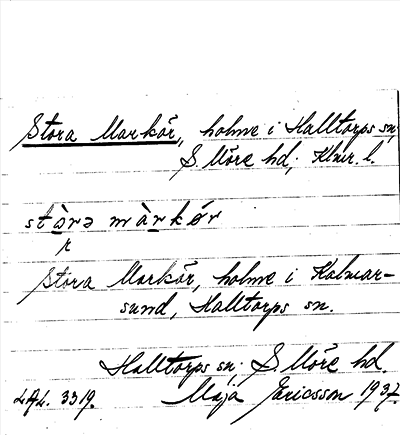 Stora Markör, holme i Halltorps sn,
S. Möre hd; Klmr. l.
stὰrə mὰrkǿr
Stora Markör, holme i Kalmar-
sund, Halltorps sn.
Halltorps sn. S. Möre hd.
LAL. 3319. Maja Ericsson 1937.